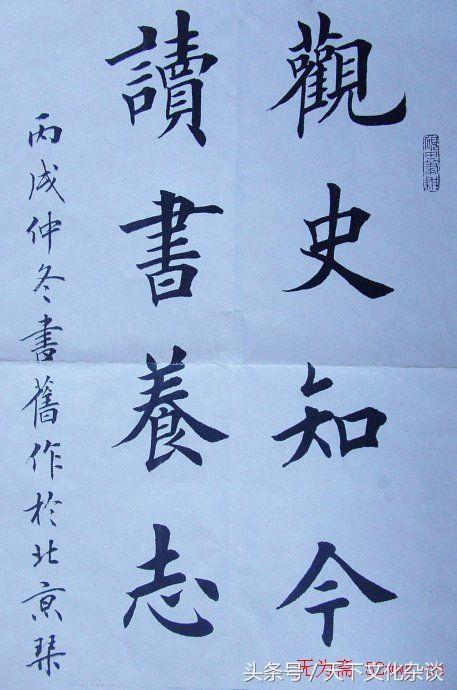 觀史知今
讀書養志
丙戌仲冬書舊作於北京琹
头条号/天下文化杂谈